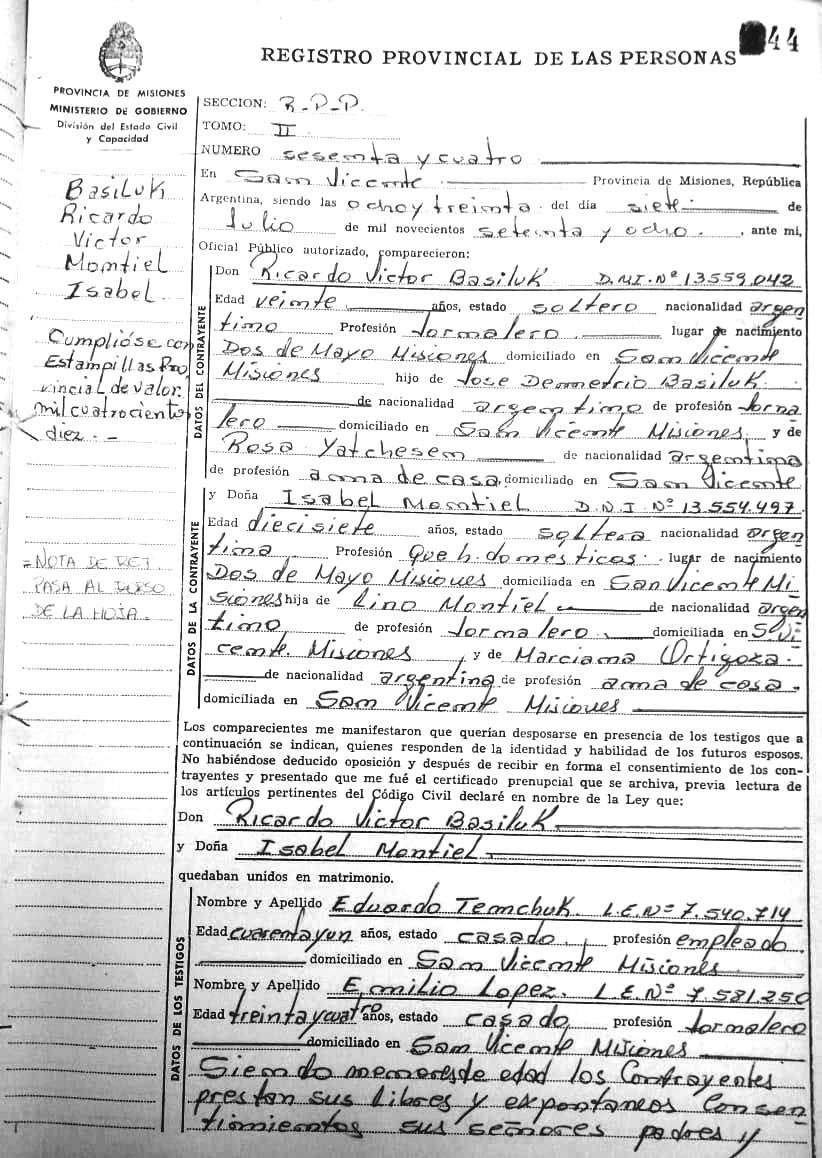 44
REGISTRO PROVINCIAL DE LAS PERSONAS
PROVINCIA DE MISIONES
MINISTERIO DE GOBIERNO
División del Estado Civil
y Capacidad
Basiluk
Ricardo
Victor
Montiel
Isabel
Cumplióse con
Estampillas Pro
vincial de valor
mil cuatrociento
diez.-
=NOTA DE REF.
PASA AL DORSO
DE LA HOJA.
SECCION: R-P-P.
TOMO: II
NUMERO sesenta y cuatro
En San Vicente Provincia de Misiones, República
Argentina, siendo las ocho y treinta del día siete de
Julio de mil novecientos setenta y ocho. , ante mi,
Oficial Público autorizado, comparecieron:
DATOS DEL CONTRAYENTE
Don Ricardo Victor Basiluk D.N.I. Nº 13559.042
Edad veinte años, estado soltero nacionalidad argen
tino Profesión Jornalero lugar de nacimiento
Dos de Mayo Misiones domiciliado en San Vicente
Misiones hijo de Jose Demetrio Basiluk.
de nacionalidad argentino de profesión Jorna
lero domiciliado en San Vicente Misiones y de
Rosa Yatchesen de nacionalidad argentina
de profesión ama de casa, domiciliado en San Vicente
DATOS DE LA CONTRAYENTE
y Doña Isabel Montiel D.N.I. Nº 13.554.497.
Edad diecisiete años, estado soltera nacionalidad argen
tina Profesión Que h. domesticos. lugar de nacimiento
Dos de Mayo Misiones domiciliada en San Vicente Mi
siones hija de Lino Montiel de nacionalidad argen
tino de profesión Jornalero domiciliada en S. Vi
cente. Misiones y de Marciana Ortigoza.
de nacionalidad argentina de profesión ama de casa.
domiciliada en San Vicente Misiones
Los comparecientes me manifestaron que querían desposarse en presencia de los testigos que a
continuación se indican, quienes responden de la identidad y habilidad de los futuros esposos.
No habiéndose deducido oposición y después de recibir en forma el consentimiento de los con-
trayentes y presentado que me fué el certificado prenupcial que se archiva, previa lectura de
los artículos pertinentes del Código Civil declaré en nombre de la Ley que:
Don Ricardo Victor Basiluk
y Doña Isabel Montiel
quedaban unidos en matrimonio.
DATOS DE LOS TESTIGOS
Nombre y Apellido Eduardo Temchuk. L.E. Nº 7.540.714
Edad cuarentayun años, estado casado profesión empleado.
domiciliado en San Vicente Misiones
Nombre y Apellido Emilio Lopez. L.E. Nº 7.581.250
Edad treintaycuatro años, estado casado profesión Jornalero
domiciliado en San Vicente Misiones
Siendo menores de edad los Contrayentes
prestan sus Libres y expontaneos Consen
timientos sus señores padres y